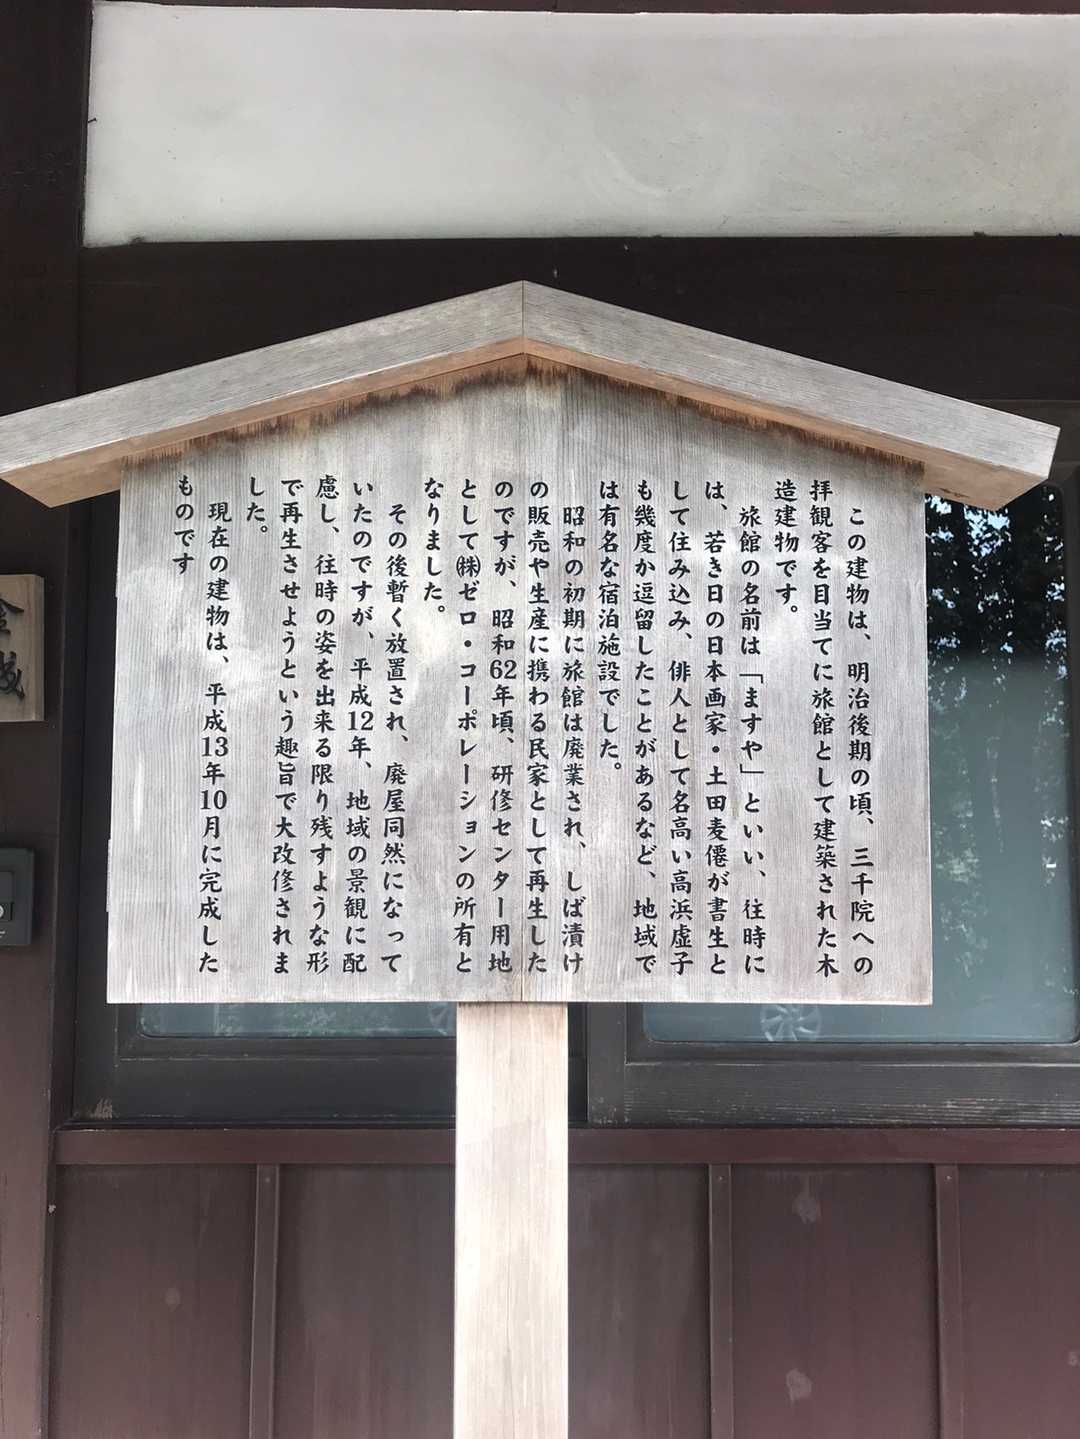 この建物は、明治後期の頃、三千院への
拝観客を目当てに旅館として建築された木
造建物です。
旅館の名前は「ますや」といい、往時に
は、若き日の日本画家・土田麦僊が書生と
して住み込み、俳人として名高い高浜虚子
も幾度か逗留したことがあるなど、地域で
は有名な宿泊施設でした。
昭和の初期に旅館は廃業され、しば漬け
の販売や生産に携わる民家として再生した
のですが、昭和62年頃、研修センター用地
として㈱ゼロ・コーポレーションの所有と
なりました。
その後暫く放置され、廃屋同然になって
いたのですが、平成12年、地域の景観に配
慮し、往時の姿を出来る限り残すような形
で再生させようという趣旨で大改修されま
した。
現在の建物は、平成13年10月に完成した
ものです